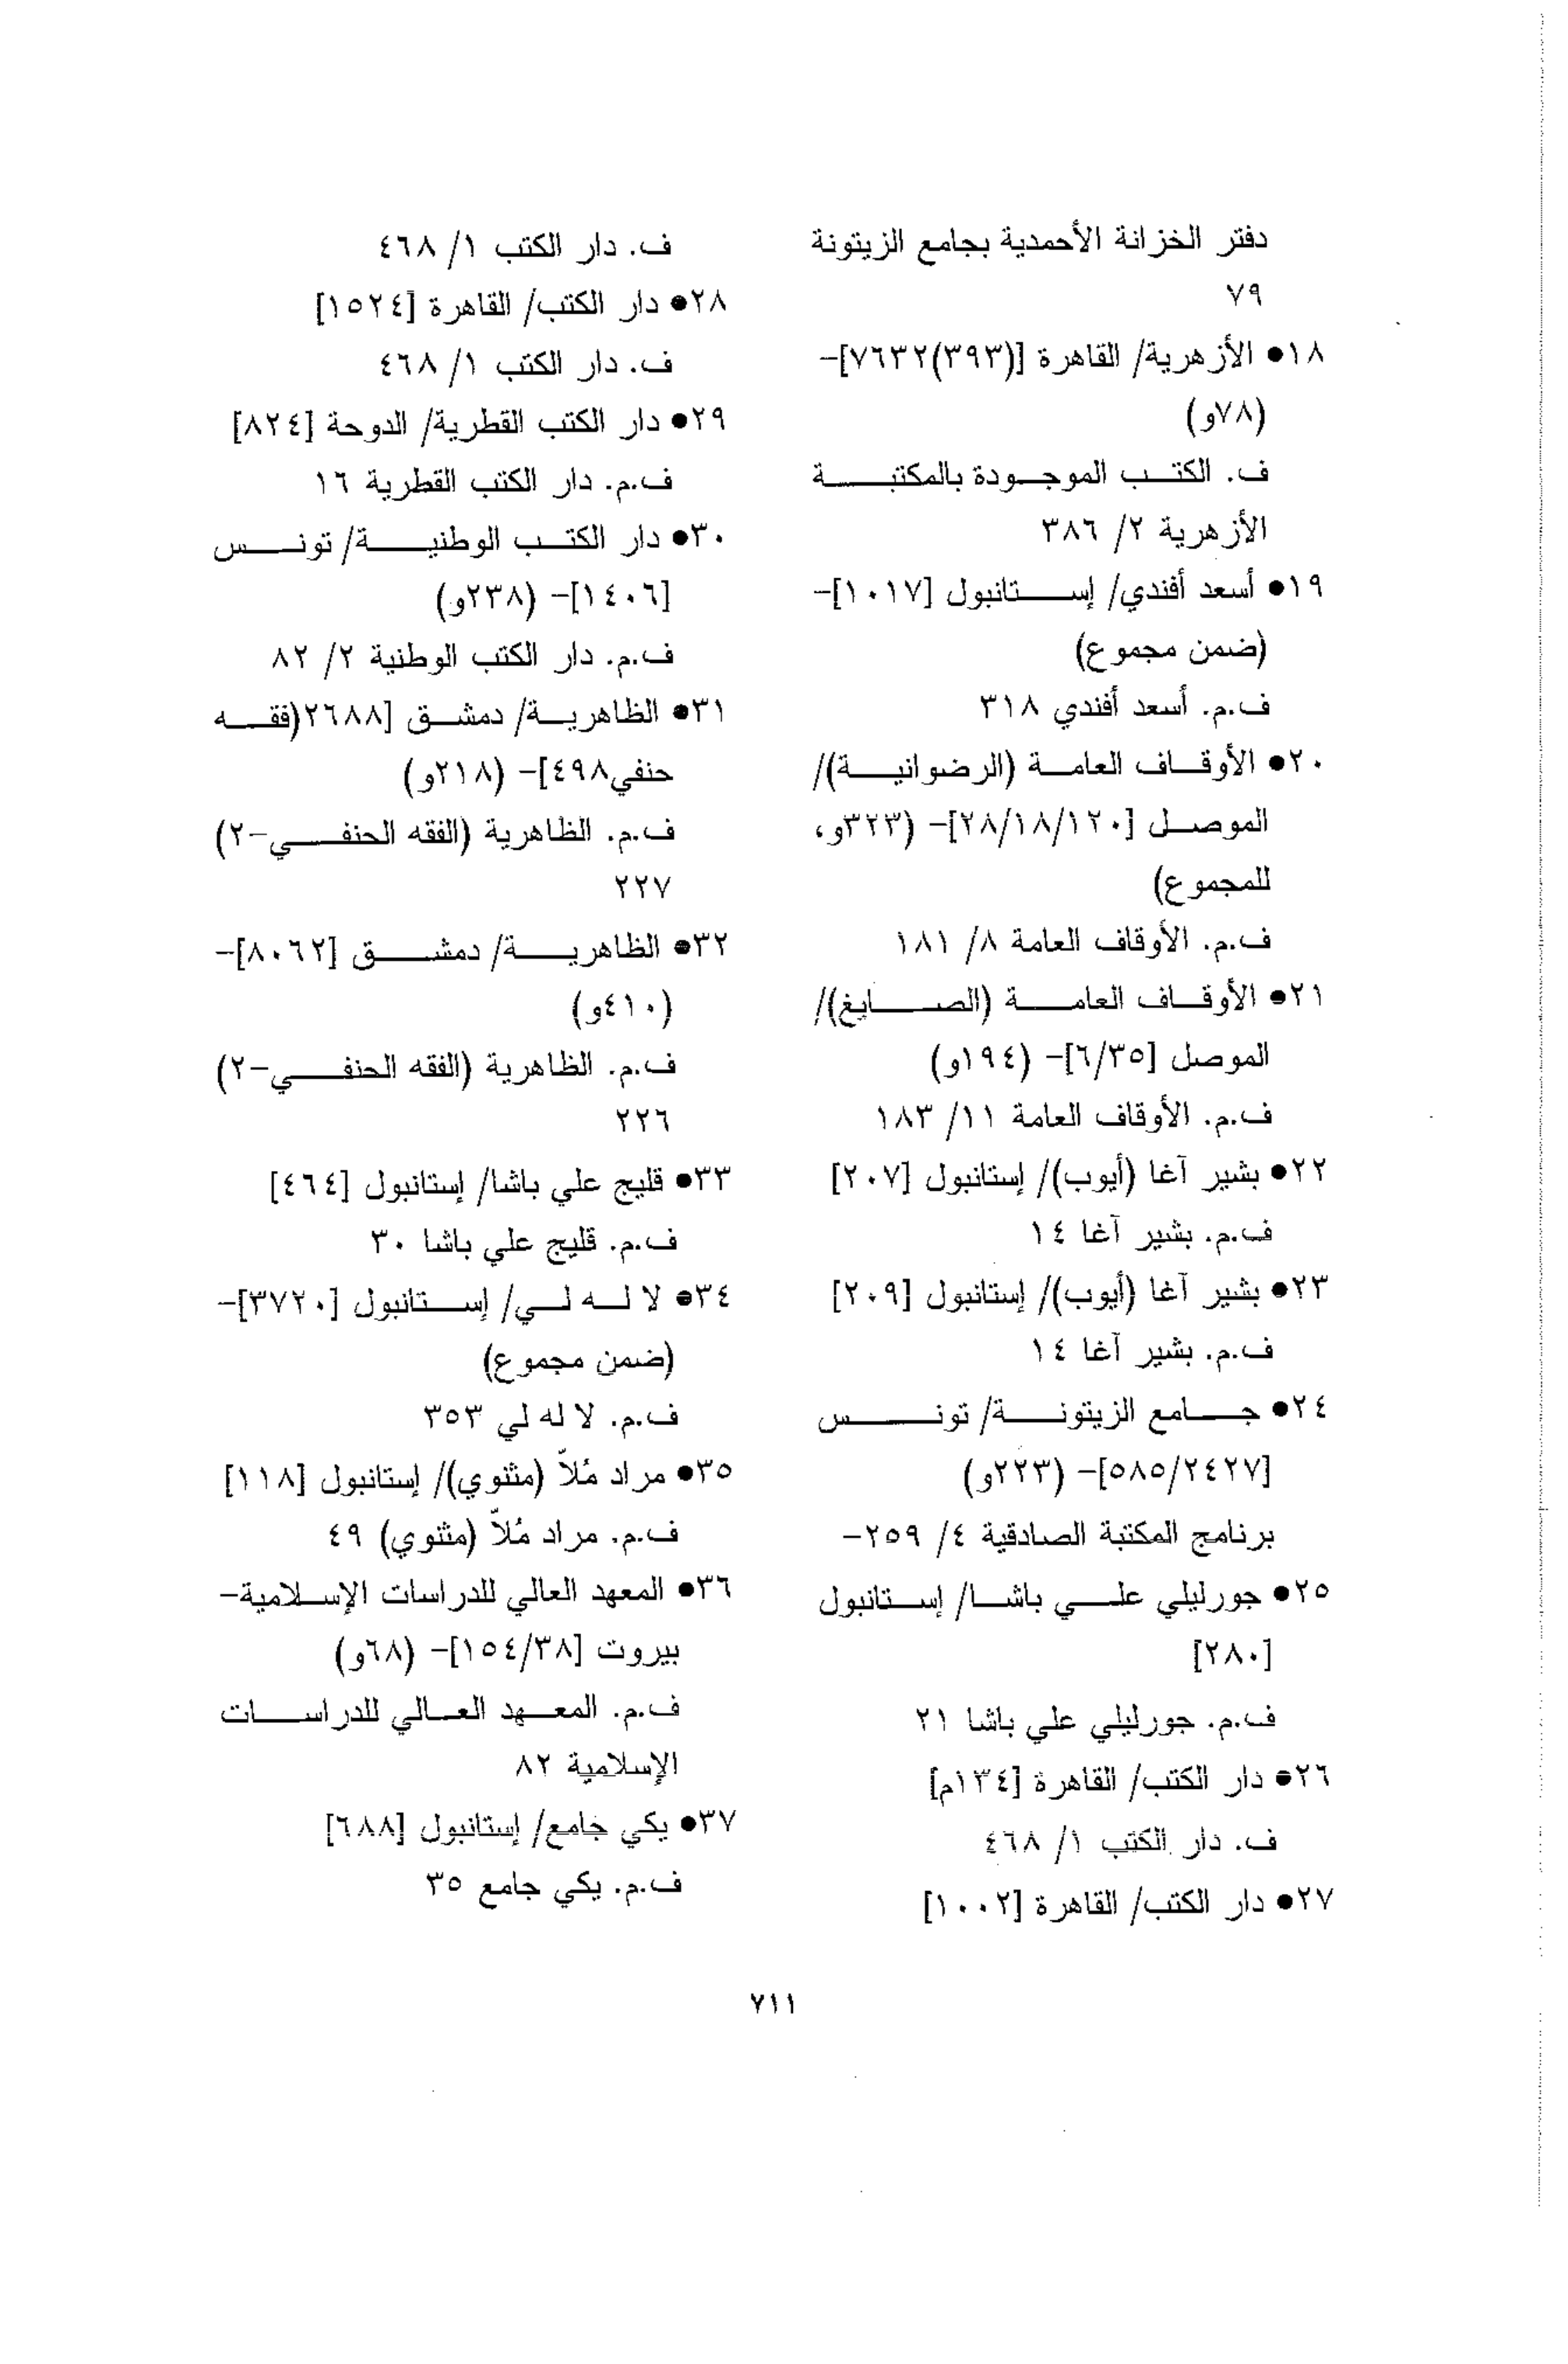 دفتر الخزانة الأحمدية بجامع الزيتونة
٧٩
١٨● الأزهرية/ القاهرة [(٣٩٣)٧٦٣٢]-
(٧٨و)
ف. الكتب الموجودة بالمكتبة
الأزهرية ٢/ ٣٨٦
١٩● أسعد أفندي/ إستانبول [١٠١٧]-
(ضمن مجموع)
ف.م. أسعد أفندي ٣١٨
٢٠● الأوقاف العامة (الرضوانية)/
الموصل [٢٨/١٨/١٢٠]- (٣٢٣و،
للمجموع)
ف.م. الأوقاف العامة ٨/ ١٨١
٢١● الأوقاف العامة (الصايغ)/
الموصل [٦/٣٥]- (١٩٤و)
ف.م. الأوقاف العامة ١١/ ١٨٣
٢٢● بشير آغا (أيوب)/ إستانبول [٢٠٧]
ف.م. بشير آغا ١٤
٢٣● بشير آغا (أيوب)/ إستانبول [٢٠٩]
ف.م. بشير آغا ١٤
٢٤● جامع الزيتونة/ تونس
[٥٨٥/٢٤٢٧]- (٢٢٣و)
برنامج المكتبة الصادقية ٤/ ٢٥٩-
٢٥● جورليلي علي باشا/ إستانبول
[٢٨٠]
ف.م. جورليلي علي باشا ٢١
٢٦● دار الكتب/ القاهرة [١٣٤م]
ف. دار الكتب ١/ ٤٦٨
٢٧● دار الكتب/ القاهرة [١٠٠٢]
ف. دار الكتب ١/ ٤٦٨
٢٨● دار الكتب/ القاهرة [١٥٢٤]
ف. دار الكتب ١/ ٤٦٨
٢٩● دار الكتب القطرية/ الدوحة [٨٢٤]
ف.م. دار الكتب القطرية ١٦
٣٠● دار الكتب الوطنية/ تونس
[١٤٠٦]- (٢٣٨و)
ف.م. دار الكتب الوطنية ٢/ ٨٢
٣١● الظاهرية/ دمشق [٢٦٨٨(فقه
حنفي٤٩٨]- (٢١٨و)
ف.م. الظاهرية (الفقه الحنفي-٢)
٢٢٧
٣٢● الظاهرية/ دمشق [٨٠٦٢]-
(٤١٠و)
ف.م. الظاهرية (الفقه الحنفي-٢)
٢٢٦
٣٣● قليج علي باشا/ إستانبول [٤٦٤]
ف.م. قليج علي باشا ٣٠
٣٤● لا له لي/ إستانبول [٣٧٢٠]-
(ضمن مجموع)
ف.م. لا له لي ٣٥٣
٣٥● مراد مُلاّ (مثنوي)/ إستانبول [١١٨]
ف.م. مراد مُلاّ (مثنوي) ٤٩
٣٦● المعهد العالي للدراسات الإسلامية-
بيروت [١٥٤/٣٨]- (٦٨و)
ف.م. المعهد العالي للدراسات
الإسلامية ٨٢
٣٧● يكي جامع/ إستانبول [٦٨٨]
ف.م. يكي جامع ٣٥
٧١١